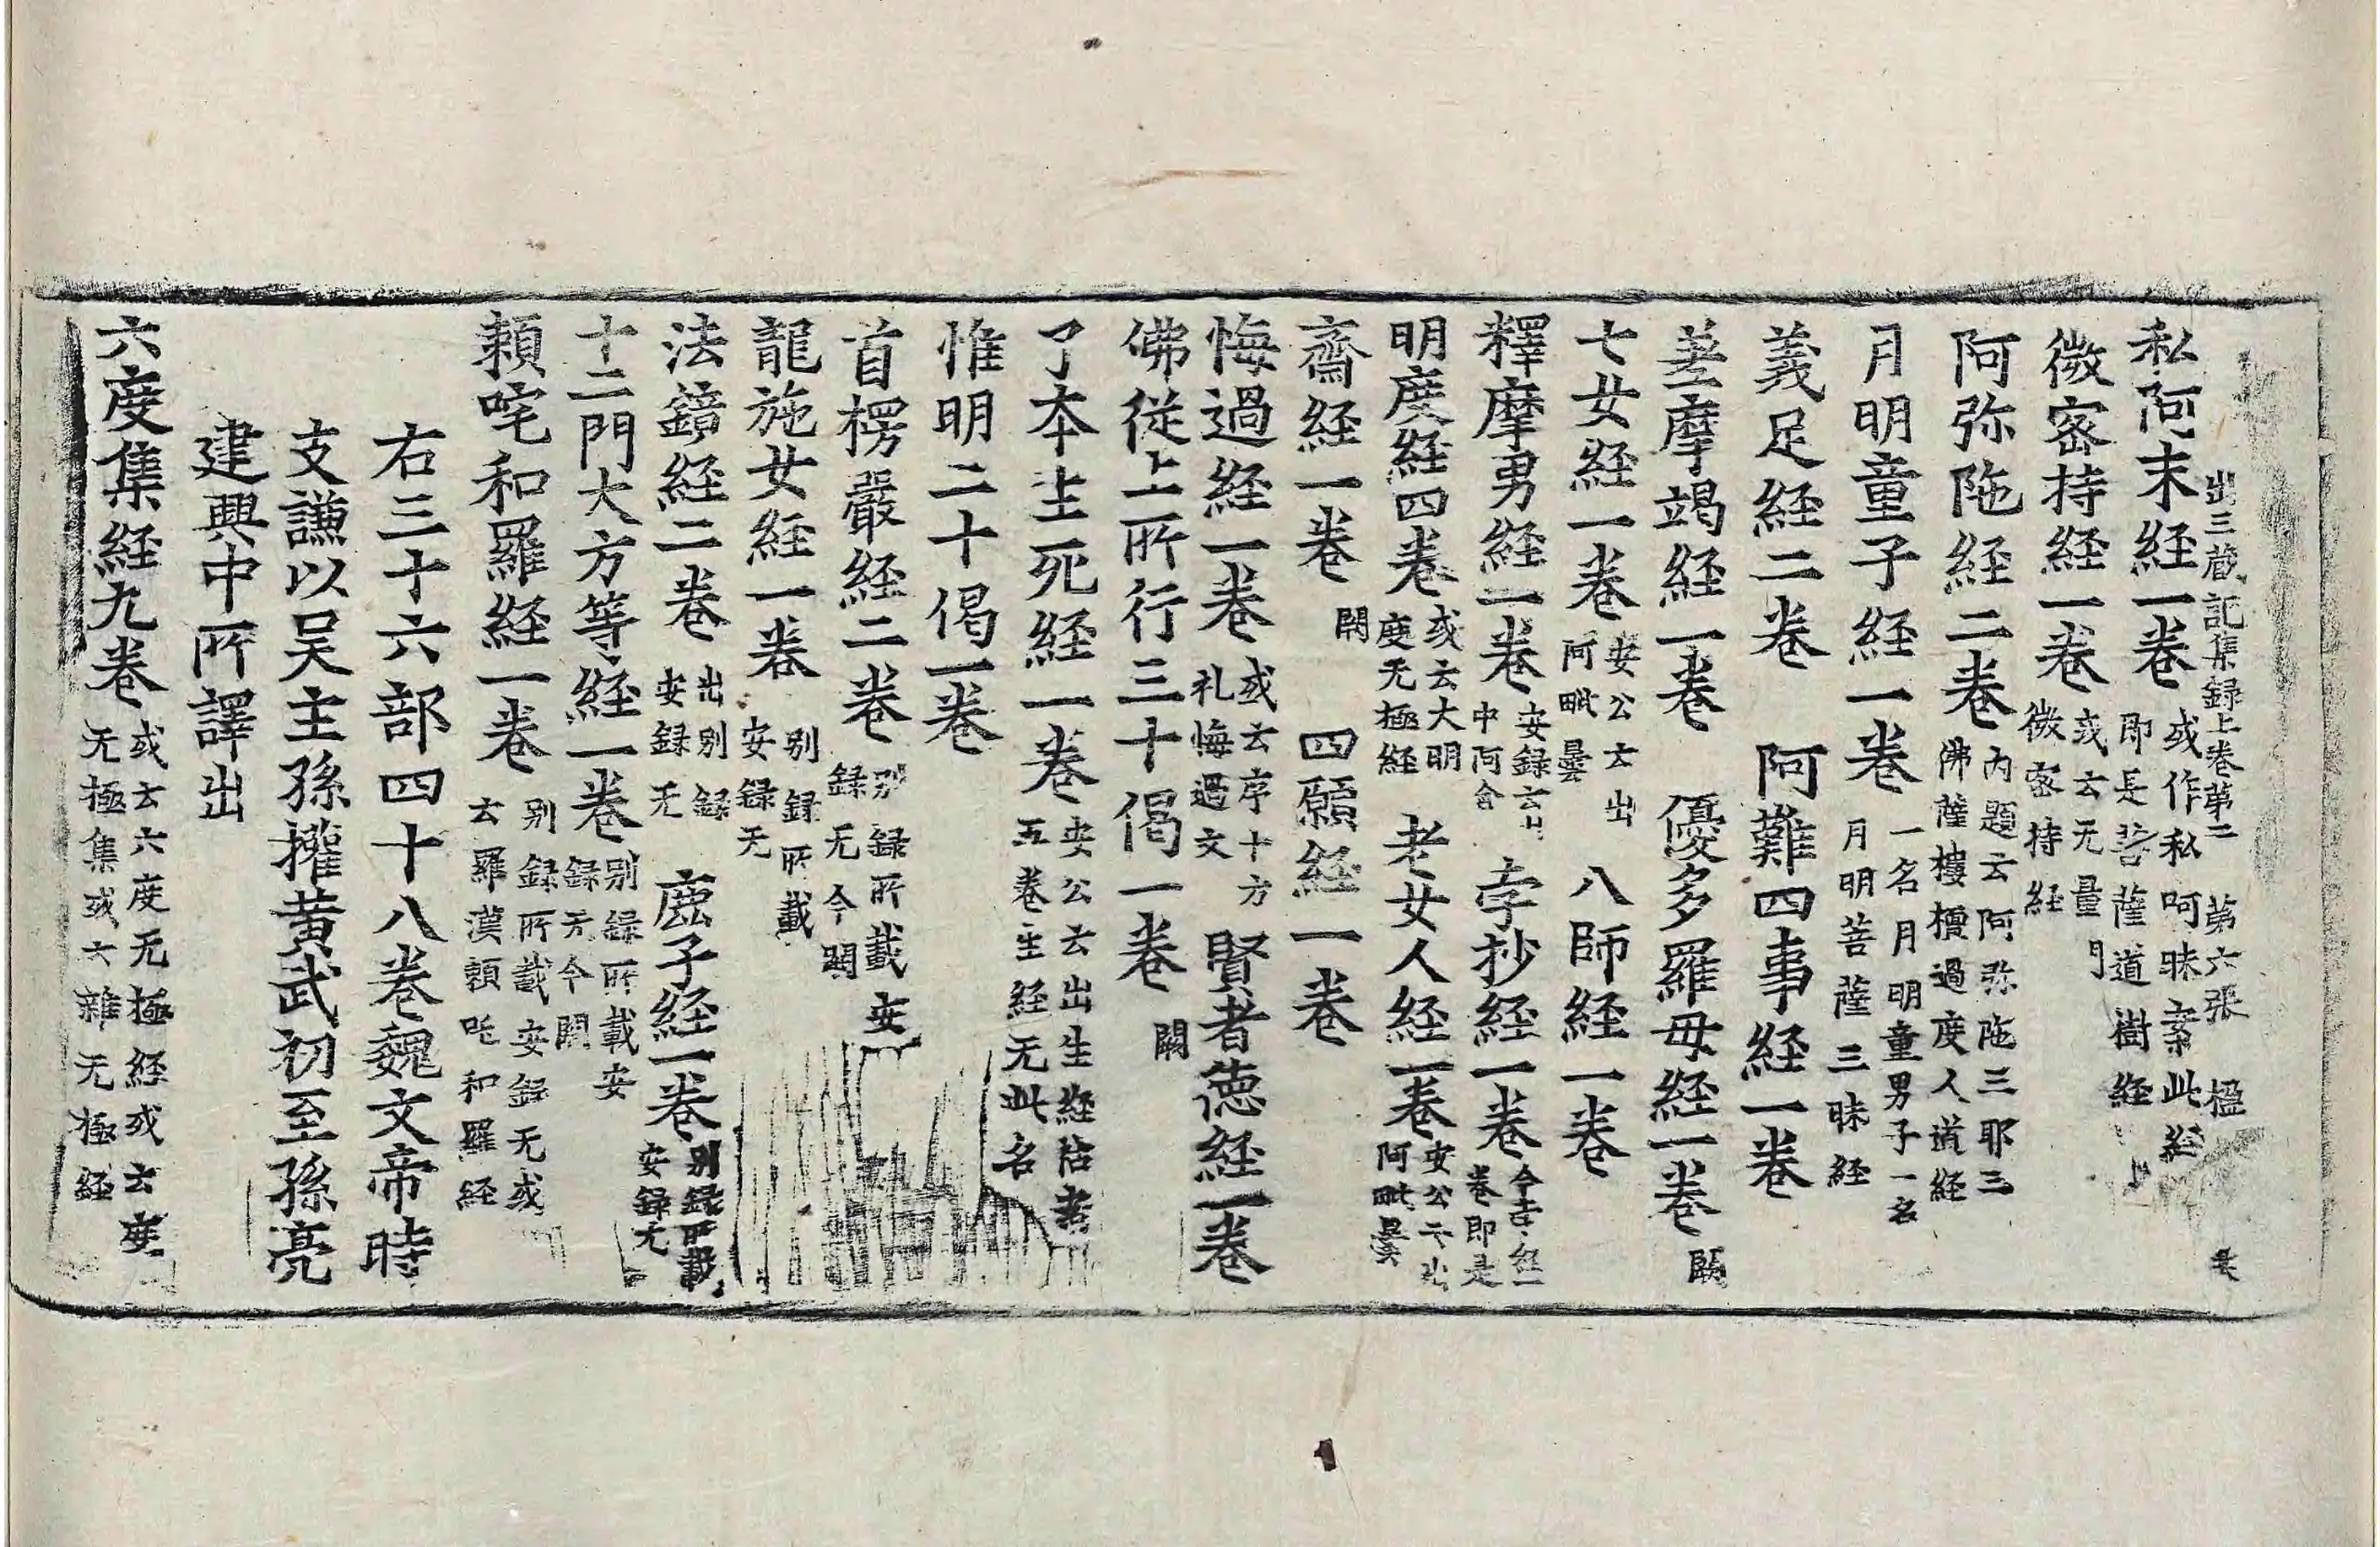 出三藏記集録上卷第二 第六張 楹
私阿末経一卷 或作私呵昧案此経 即是菩薩道樹経
微密持経一卷 或云无量門 微密持経
阿弥陁経二卷 内題云阿弥陁三耶三 佛薩樓檀過度人道経
月明童子経一卷 一名月明童男子一名 月明菩薩三昧経
義足経二卷 阿難四事経一卷
差摩竭経一卷 優多羅母経一卷 闕
七女経一卷 安公云出 阿毗曇 八師経一卷
釋摩男経一卷 安録云出 中阿含 孛抄経一卷 今孛経一 卷即是
明度経四卷 或云大明 度无極経 老女人経一卷 安公云出 阿毗曇
齋経一卷 闕 四願経一卷
悔過経一卷 或云序十方 礼悔過文 賢者德経一卷
佛從上所行三十偈一卷 闕
了本生死経一卷 安公云出生経祐案 五卷生経无此名
惟明二十偈一卷
首楞嚴経二卷 別録所載安 録无今闕
龍施女経一卷 別録所載 安録无
法鏡経二卷 出別録 安録无 鹿子経一卷 別録所載 安録无
十二門大方等経一卷 別録所載安 録无今闕
頼吒和羅経一卷 別録所載安録无或 云羅漢頼吒和羅経
右三十六部四十八卷魏文帝時
支謙以吴主孫權黄武初至孫亮
建興中所譯出
六度集経九卷 或云六度无極経或云度 无極集或云雜无極経